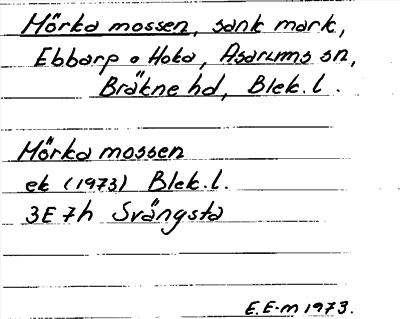 Mörka mossen, sank mark,
Ebbarp o Hoka, Asarums sn,
Bräkne hd, Blek. l.
Mörka mossen
ek (1973) Blek. l.
3E 7h Svängsta
E. E-m 1973.